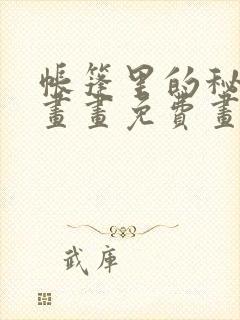 帳篷里的秘
畫畫免費畫
武庫